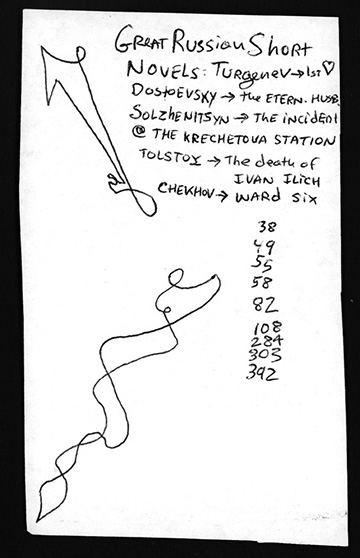 GREAT RUSSIAN SHORT
NOVELS: TURGENEV → 1ST ♡
DOSTOEVSKY → the ETERN. HUSB.
SOLZHENITSYN → THE incident
@ THE KRECHETOVA STATION
TOLSTOY → The death of
IVAN ILICH
CHEKHOV → WARD SIX
38
49
55
58
82
108
284
303
392